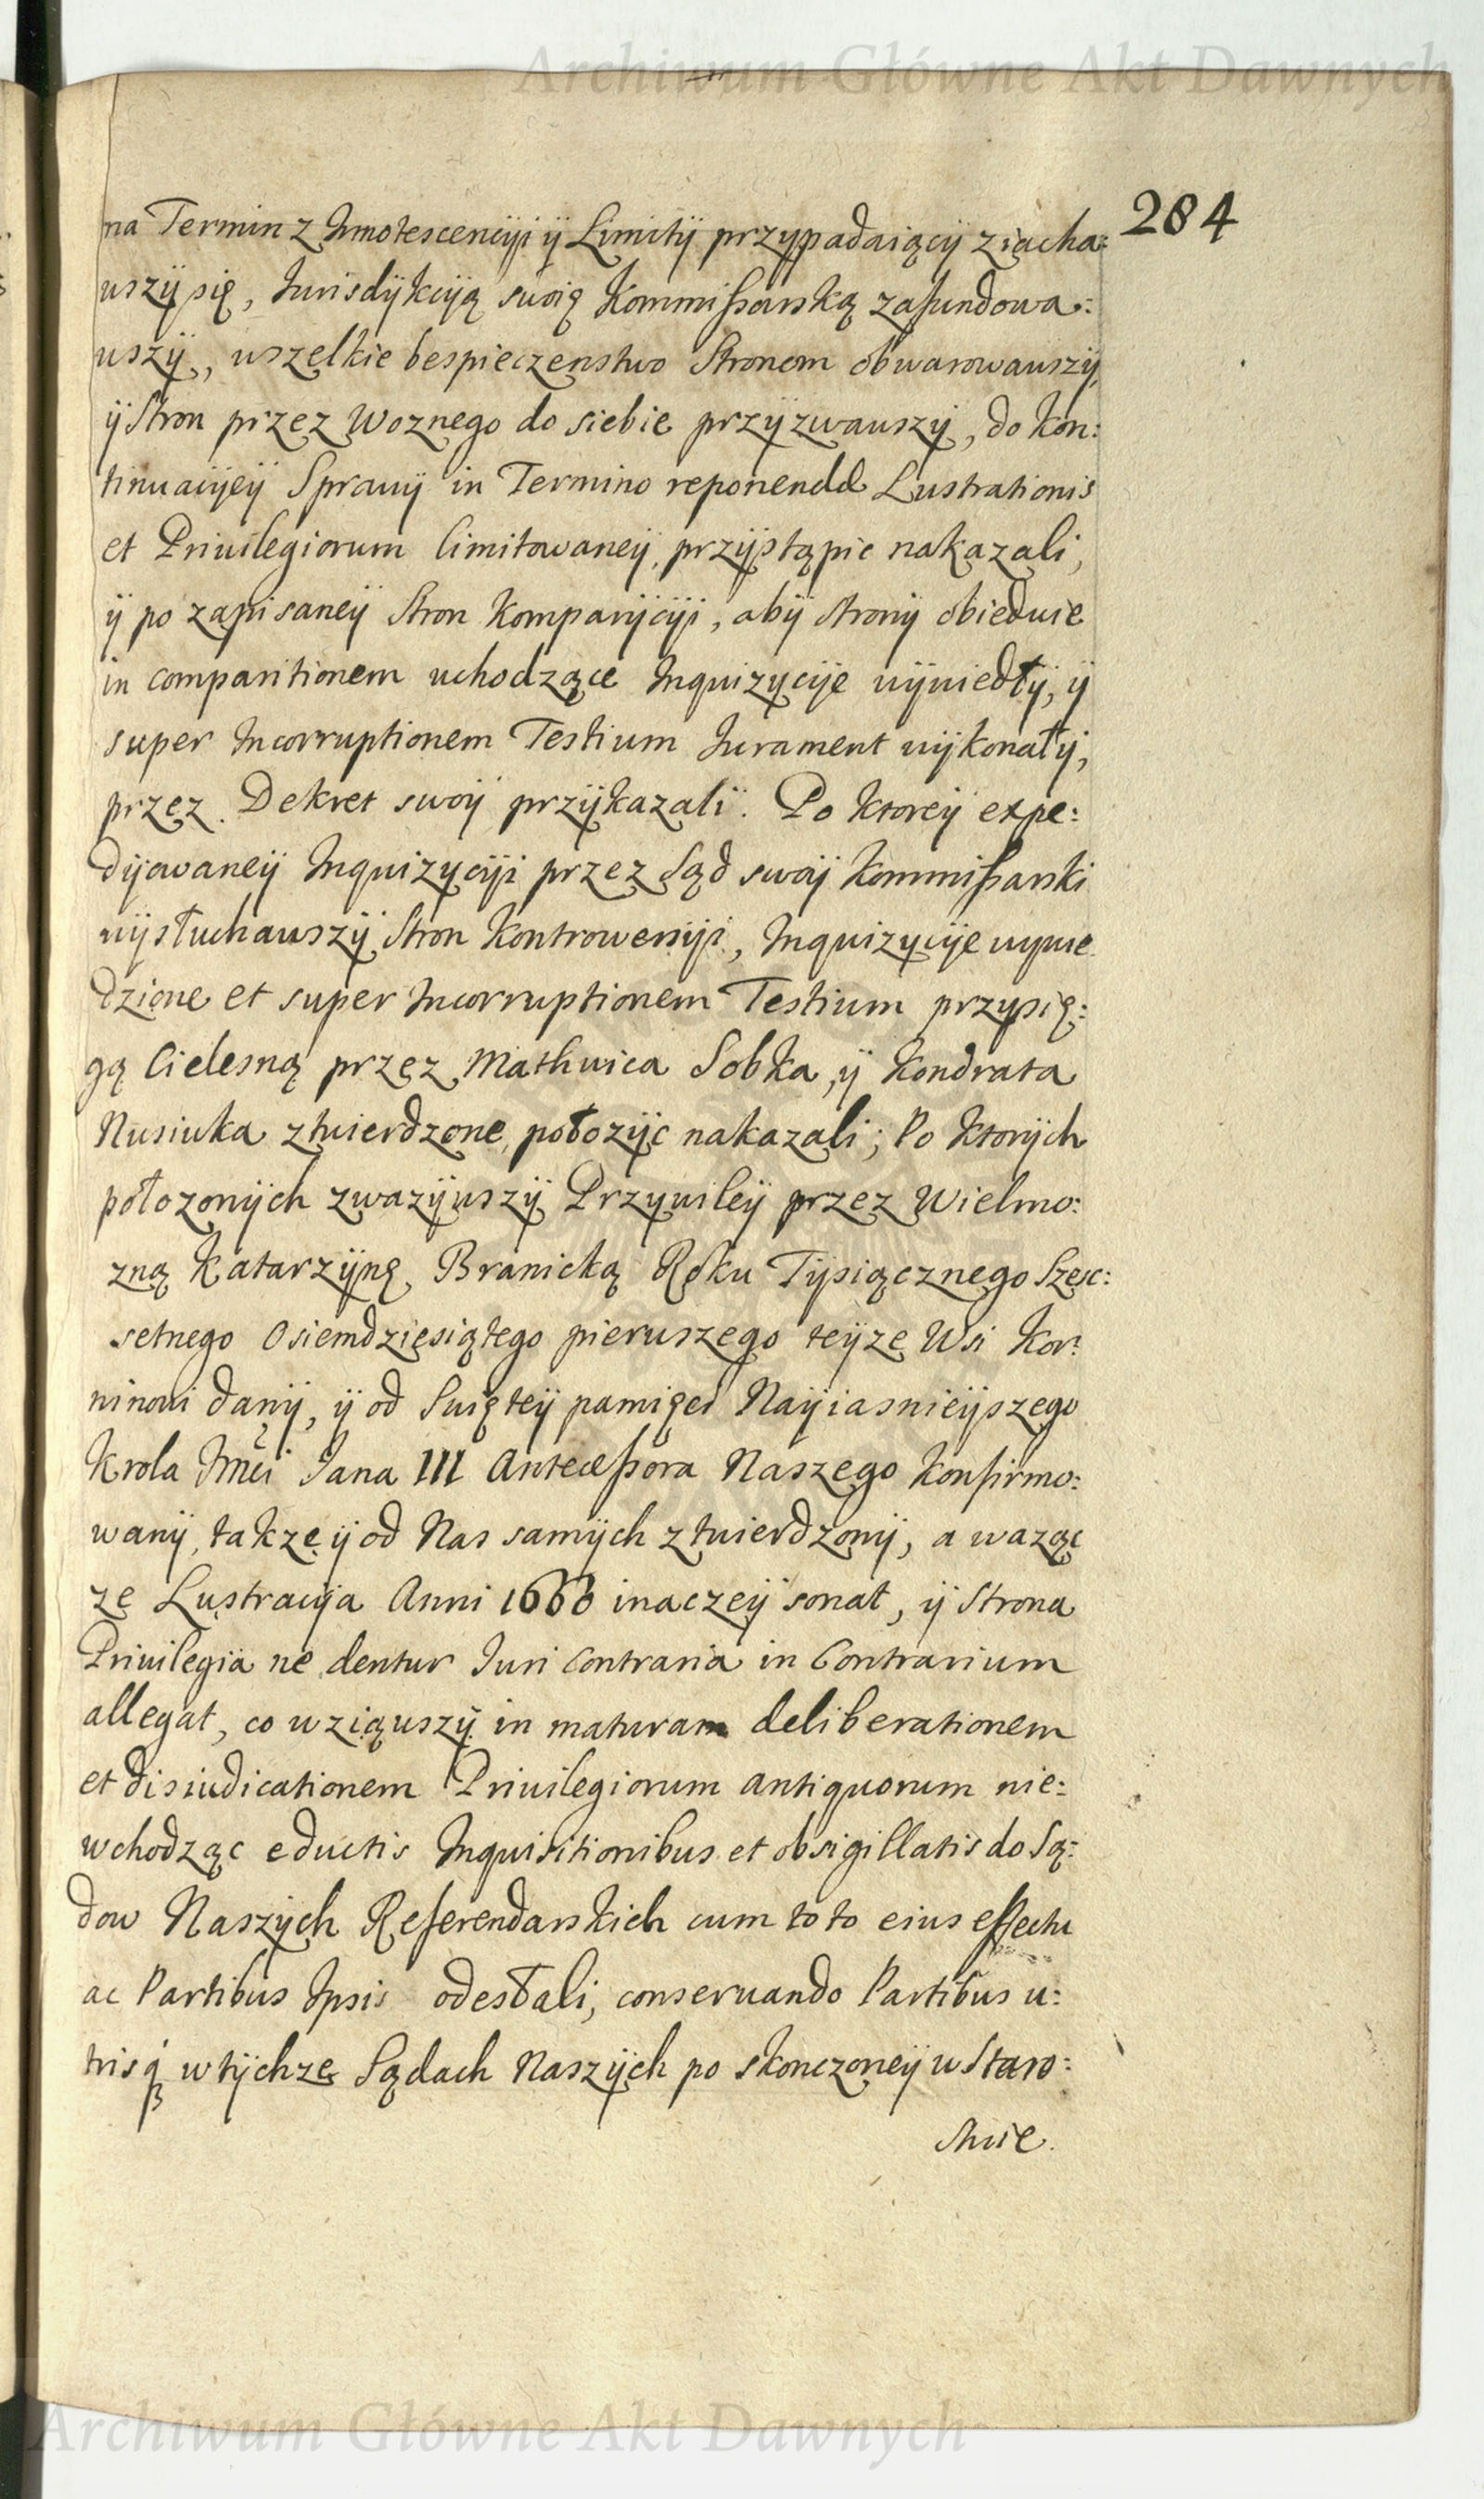 Archiwum Główne Akt Dawnych
284
na Termin z Innotescencÿi ÿ Limitÿ przypadaiącÿ ziacha:
wszÿ się, Jurisdÿkcÿą swoię Kommissarską zafundowa:
wszÿ, wszelkie bespieczenstwo Stronom obwarowawszÿ,
ÿ Stron przez Woznego do siebie przÿzwawszÿ, do Kon:
tinuacÿeÿ Sprawÿ in Termino reponendæ Lustrationis
et Privilegiorum limitowaneÿ, przÿstąpic nakazali,
ÿ po zapisaneÿ Stron Komparÿcÿi, abÿ Stronÿ obiedwie
in comparitionem wchodzące Inquizycÿe wÿwiedłÿ, ÿ
super Incorruptionem Testium Jurament wÿkonałÿ,
przez Dekret swoÿ przÿkazali. Po ktoreÿ expe:
dÿowaneÿ Inquizycÿi przez Sąd swoÿ Kommissarski
wÿsłuchawszÿ Stron Kontrowersÿi, Inquizycÿe wywie
dzione et super Incorruptionem Testium przysię:
gą Cielesną przez Mathwica Sobka, ÿ Kondrata
Nusiuka ztwierdzone, połozÿc nakazali; Po ktorÿch
połozonÿch zwazÿwszÿ Przywileÿ przez Wielmo:
zną Katarzÿnę Branicką Roku Tÿsiącznego Szesc:
setnego Osiemdziesiątego pierwszego teÿze Wsi Kor:
ninowi danÿ, ÿ od Swięteÿ pamięci Naÿiasnieÿszego
Krola Jmci Jana III Antecessora Naszego konfirmo:
wanÿ, takze ÿ od Nas samÿch ztwierdzonÿ, a waząc
ze Lustracÿa Anni 1663 inaczeÿ sonat, ÿ Strona
Privilegia ne dentur Juri contraria in Contrarium
allegat, co wziąwszÿ in maturam deliberationem
et disiudicationem Privilegiorum antiquorum nie:
wchodząc eductis Inquisitionibus et obsigillatis do Są:
dow Naszÿch Referendarskich cum toto eius effectu
ac Partibus Ipsis odesłali, conservando Partibus u:
trisq́ wtÿchze Sądach Naszÿch po skonczoneÿ w Staro:
stwie.
Archiwum Główne Akt Dawnych